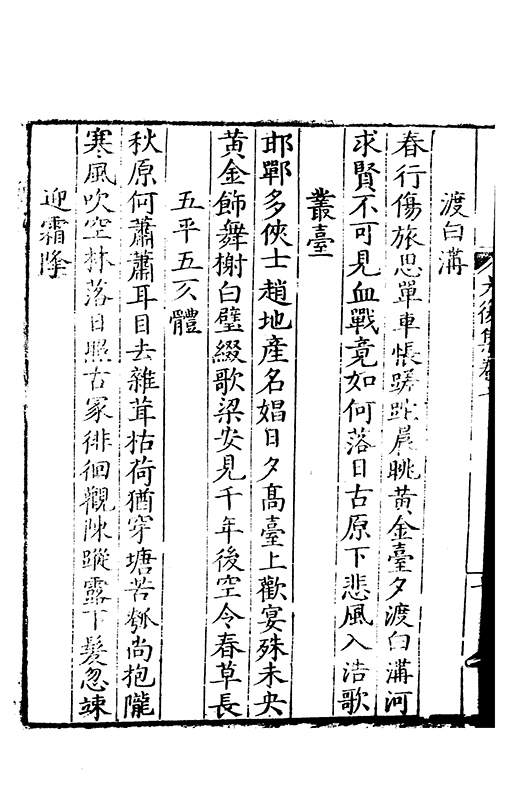 渡白溝
春行傷旅思單車悵蹉跎晨眺黃金臺夕渡白溝河
求賢不可見血戰竟如何落日古原下悲風入浩歌
叢臺
邯鄲多俠士趙地産名娼日夕高臺上歡宴殊未央
黃金飾舞榭白璧綴歌梁安見千年後空令春草長
五平五仄體
秋原何蕭蕭耳目去雜茸枯荷猶穿塘苦瓠尚抱隴
寒風吹空林落日照古冢徘徊觀陳蹤露下髮忽竦
迎霜隆